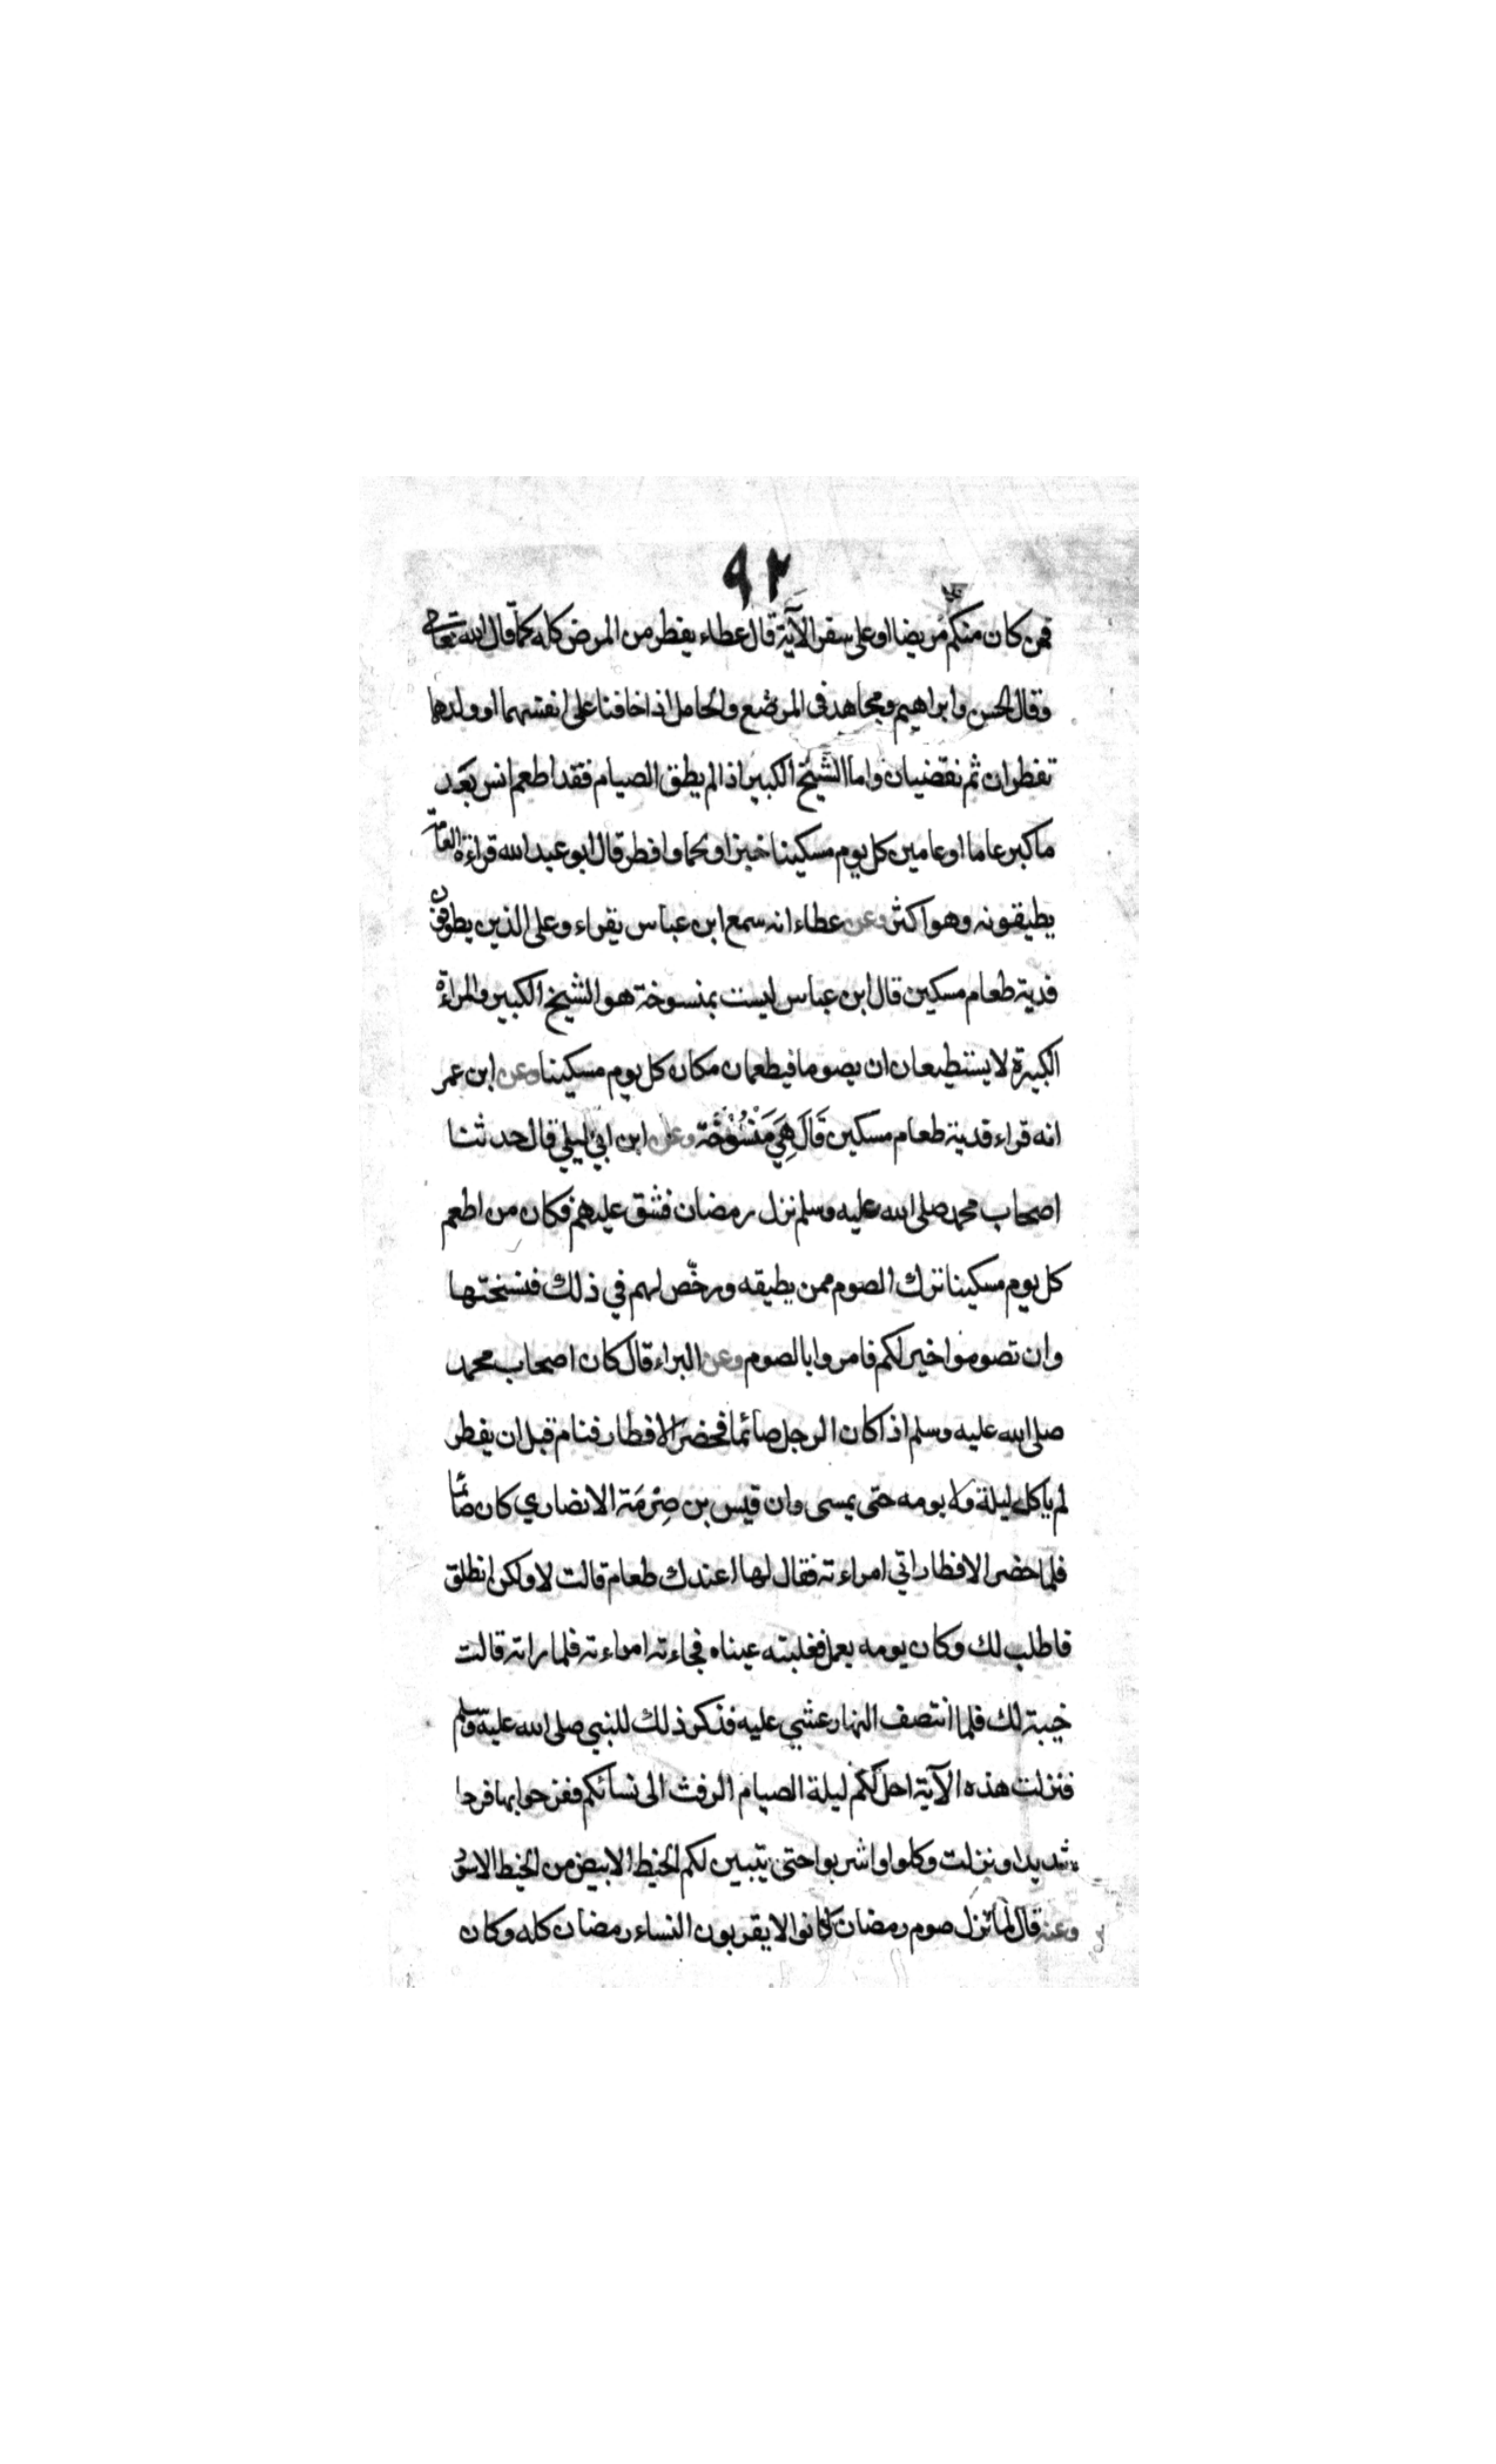 ٩٢
فمن كان منكم مريضا او على سفر الآية قال عطاء يفطر من المرض كله كما قال الله تعالى
وقال الحسن وابراهيم ومجاهد فى المرضع والحامل اذا خافتا على انفسهما او ولدهما
تفطران ثم تقضيان واما الشيخ الكبير اذا لم يطق الصيام فقد اطعم انس بعد
ما كبر عاما او عامين كل يوم مسكينا خبزا ولحما وافطر قال ابو عبد الله قراءة العامة
يطيقونه وهو اكثر وعن عطاء انه سمع ابن عباس يقراء وعلى الذين يطوقونه
فدية طعام مسكين قال ابن عباس ليست بمنسوخة هو الشيخ الكبير والمراءة
الكبيرة لا يستطيعان ان يصوما فيطعمان مكان كل يوم مسكينا وعن ابن عمر
انه قراء فدية طعام مسكين قَالَ هِيَ مَنْسُوْخَة وعن ابن ابي ليلي قال حدثنا
اصحاب محمد صلى الله عليه وسلم نزل رمضان فشق عليهم فكان من اطعم
كل يوم مسكينا ترك الصوم ممن يطيقه ورخّص لهم في ذلك فنسختها
وان تصوموا خير لكم فامروا بالصوم وعن البراء قال كان اصحاب محمد
صلى الله عليه وسلم اذا كان الرجل صائما فحضر الافطار فنام قبل ان يفطر
لم ياكل ليلة ولا يومه حتى يمسى وان قيس بن صِرْمَة الانصاري كان صائما
فلما حضر الافطار اتي امراءته فقال لها اعندك طعام قالت لا ولكن انطلق
فاطلب لك وكان يومه يعمل فغلبته عيناه فجاءته امراءته فلما راته قالت
خيبة لك فلما انتصف النهار غشي عليه فذكر ذلك للنبي صلى الله عليه وسلم
فنزلت هذه الآية احل لكم ليلة الصيام الرفث الى نسائكم ففرحوا بها فرحا
شديدا ونزلت وكلوا واشربوا حتى يتبين لكم الخيط الابيض من الخيط الاسود
وعنه قال لما نزل صوم رمضان كانوا لا يقربون النساء رمضان كله وكان